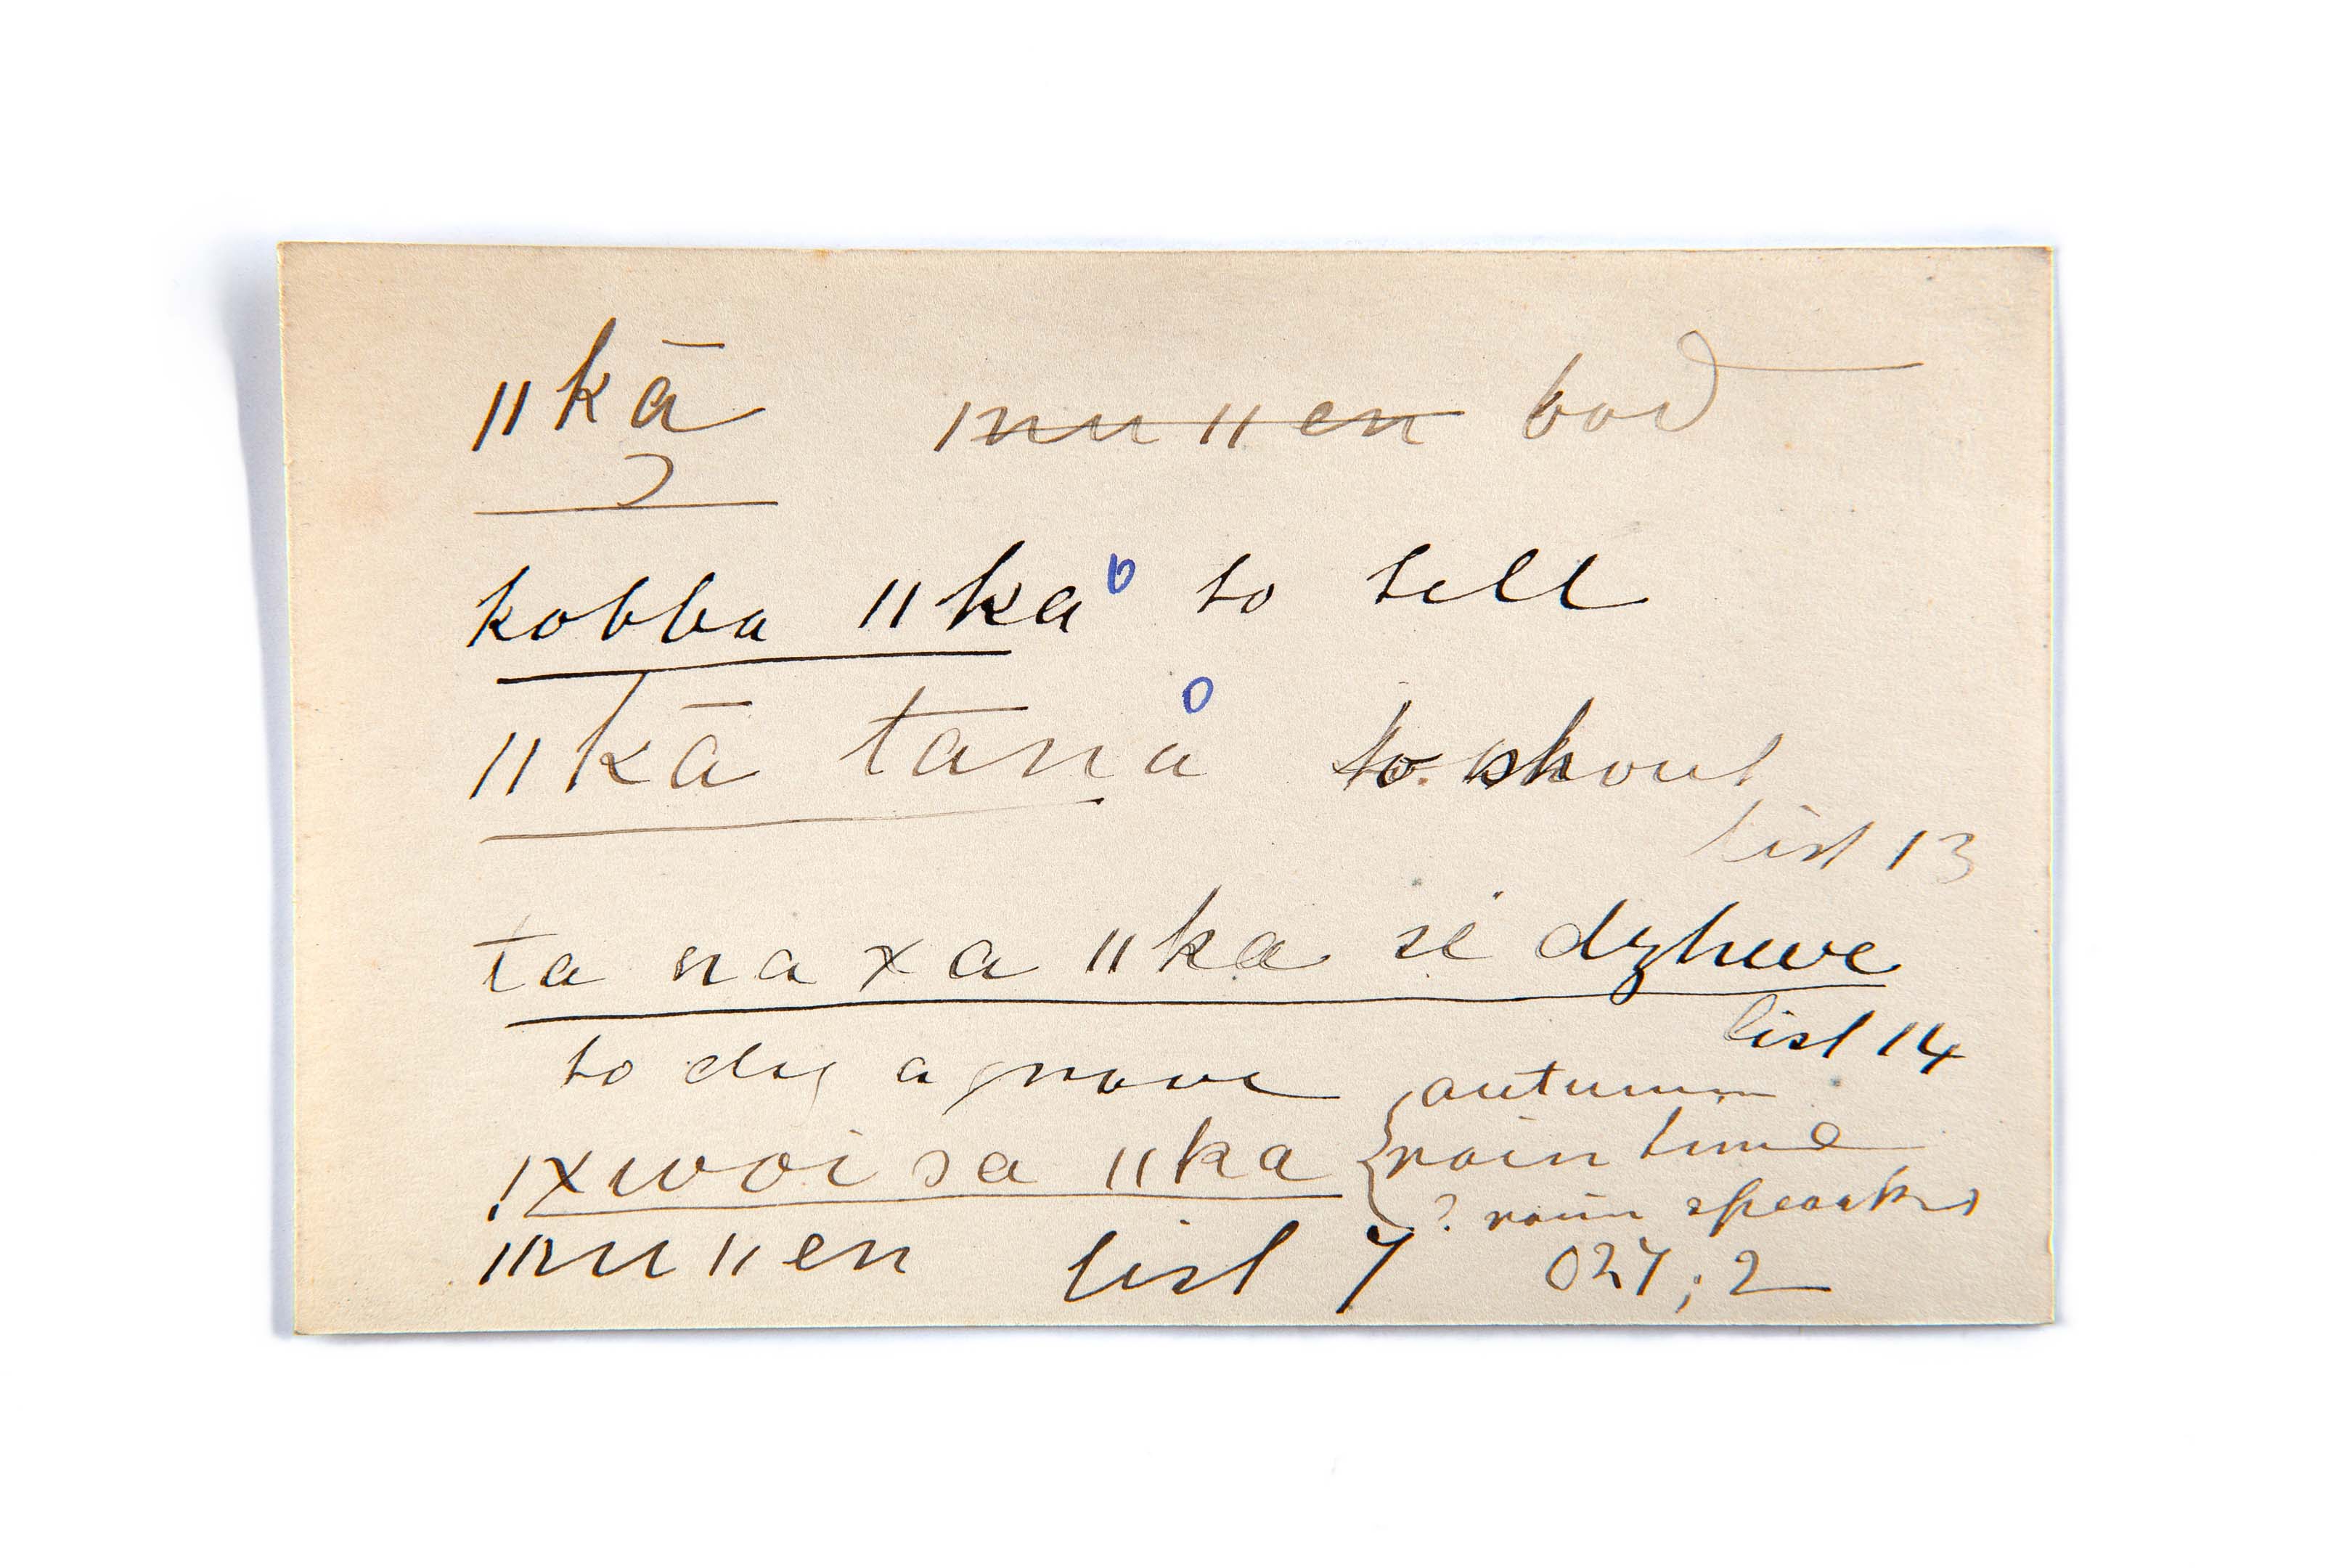 ǁkā̡ ~~ǀnuǁen~~ bad
kobba ǁka⁰ to tell
ǁkā tana⁰ to shout
list 13
ta na xa ǁka si dzhuve
list 14
to dig a grave
!xwoi sa ǁka { autumn
rain time
? rain speaks
ǁnuǁen list 7 027; 2